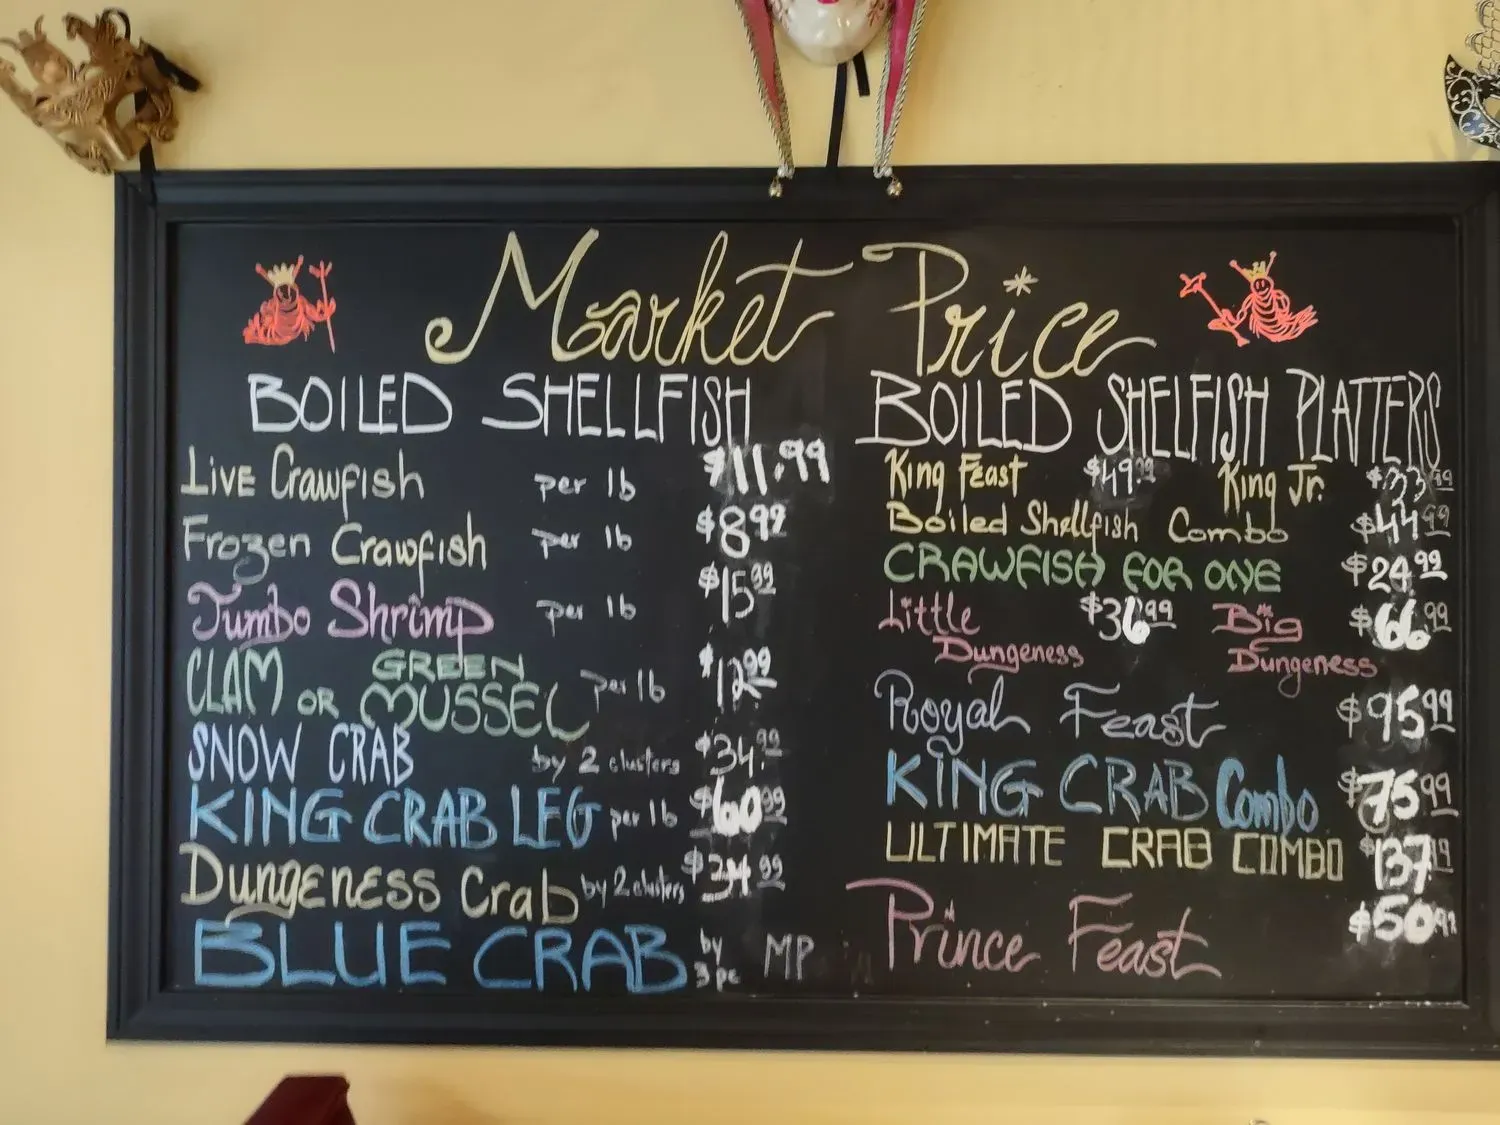 Market Price
BOILED SHELLFISH
Live Crawfish per lb $11.99
Frozen Crawfish per lb $8.99
Jumbo Shrimp per lb $15.99
CLAM OR GREEN MUSSEL per lb $12.99
SNOW CRAB by 2 clusters $34.99
KING CRAB LEG per lb $60.99
Dungeness Crab by 2 clusters $34.99
BLUE CRAB by 3pc MP
BOILED SHELFISH PLATTERS
King Feast $49.99 King Jr. $33.99
Boiled Shellfish Combo $44.99
CRAWFISH FOR ONE $24.99
Little Dungeness $36.99 Big Dungeness $66.99
Royal Feast $95.99
KING CRAB Combo $75.99
ULTIMATE CRAB COMBO $137.99
Prince Feast $50.99